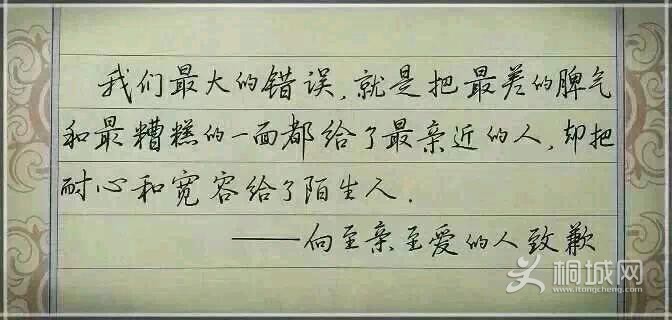 我们最大的错误,就是把最差的脾气
和最糟糕的一面都给了最亲近的人,却把
耐心和宽容给了陌生人.
——向至亲至爱的人致歉
桐城网
www.itongcheng.com